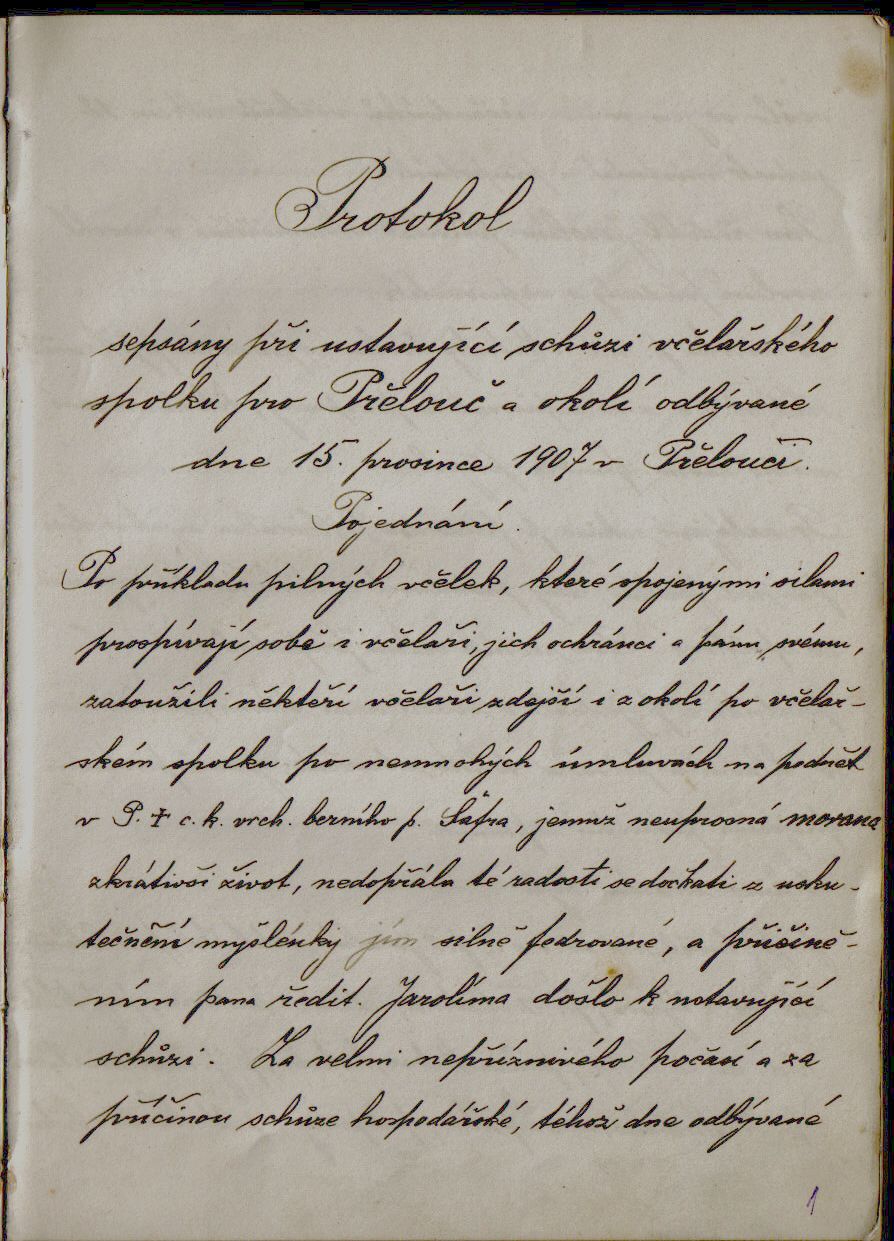 Protokol
sepsány při ustavující schůzi včelařského
spolku pro Přelouč a okolí odbývané
dne 15. prosince 1907 v Přelouči.
Pojednání.
Po příkladu pilných včelek, které spojenými silami
prospívají sobě i včelaři, jich ochránci a pánu svému,
zatoužili někteří včelaři zdejší i z okolí po včelař-
ském spolku po nemnohých úmluvách na podnět
v P. † c. k. vrch. berního p. Šafra, jemuž neuprosná morana
zkrátivši život, nedopřála té radosti se dočkati z usku-
tečnění myšlénky jím silně fedrované, a přičině-
ním pana ředit. Jarolíma došlo k ustavující
schůzi. Za velmi nepříznivého počasí a za
příčinou schůze hospodářské, téhož dne odbývané
1